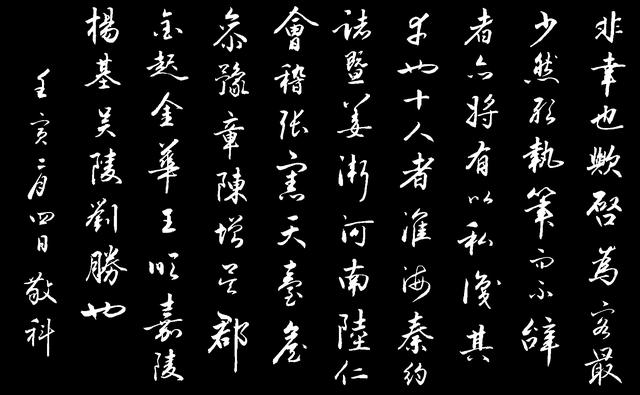 非幸也歟啓為客最
少然敢執筆而不辭
者亦將有以私識其
幸也十人者淮海秦約
諸暨姜漸河南陸仁
會稽張憲天臺詹
參豫章陳增吳郡
金起金華王順嘉陵
楊基吳陵劉勝也
壬寅二月四日敬科